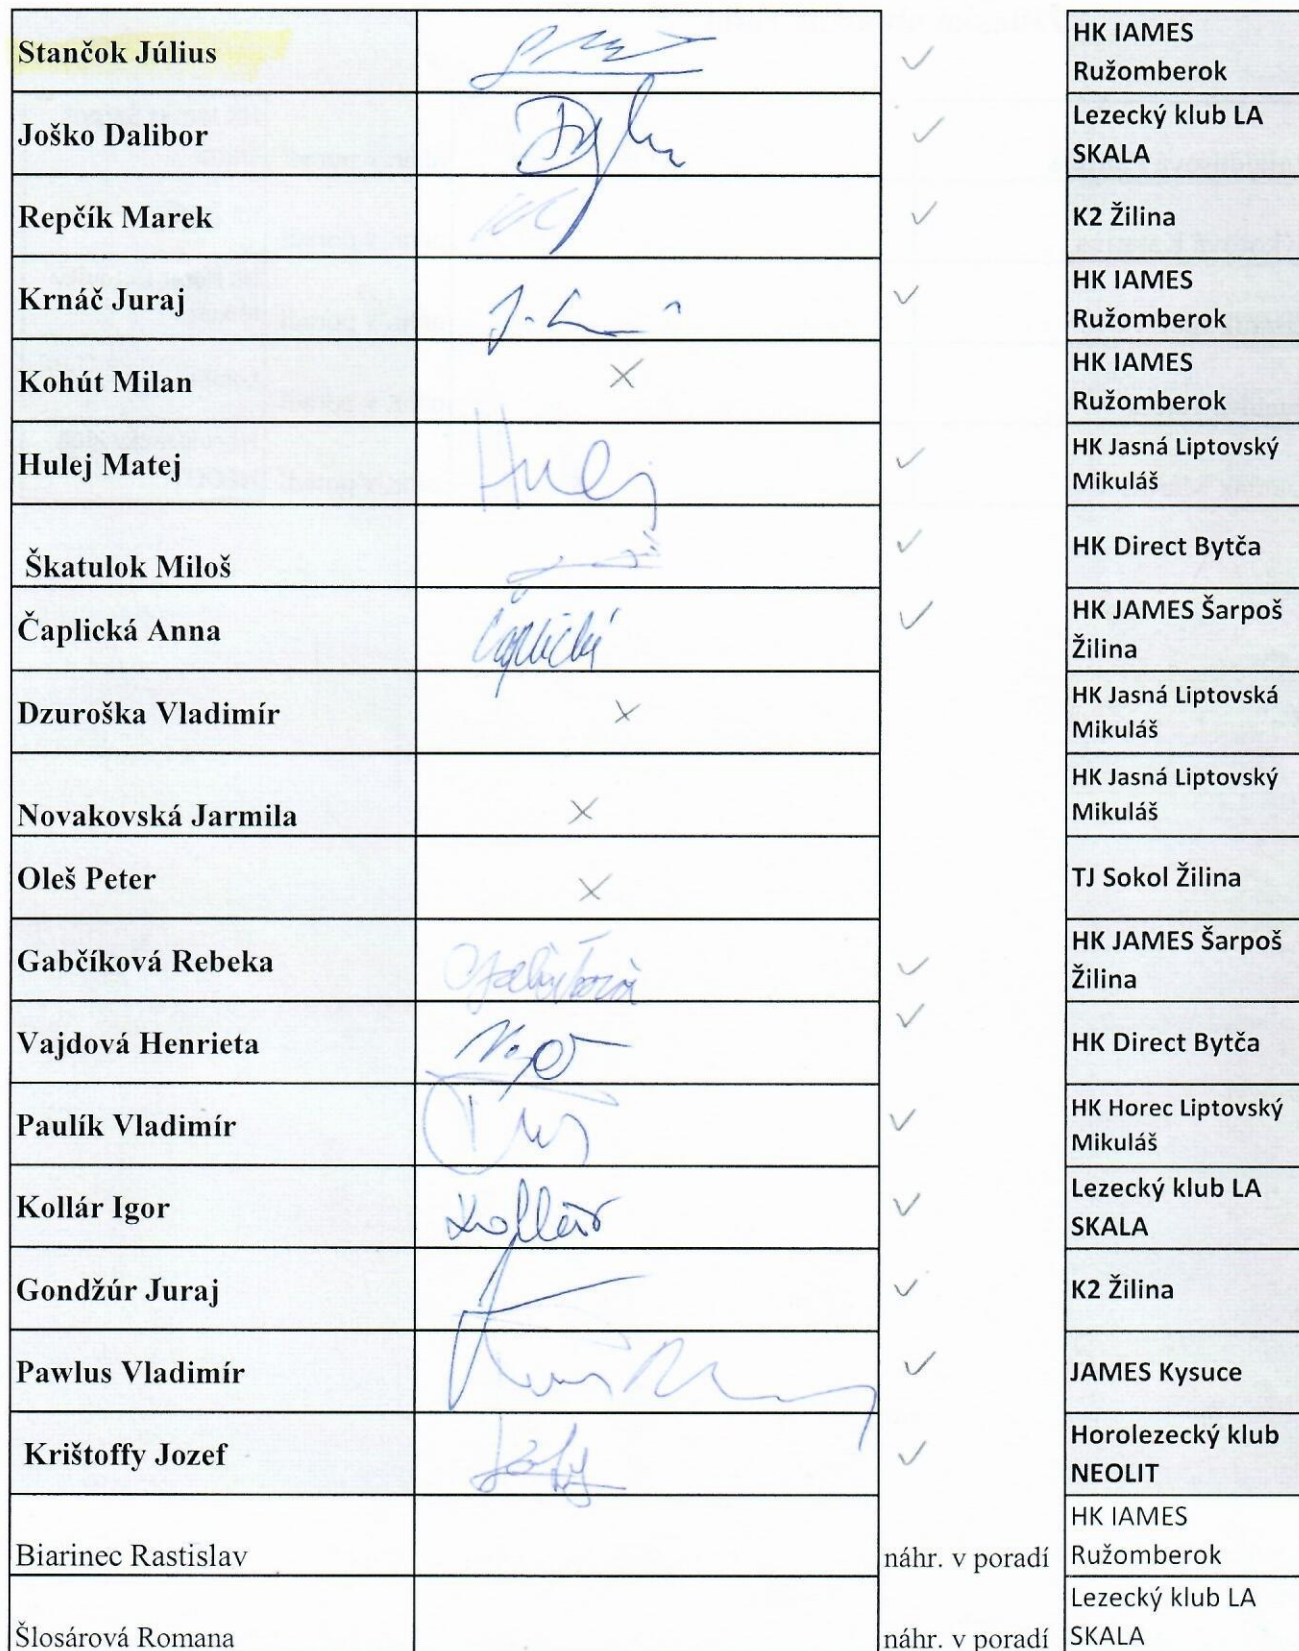 Stančok Július ✓ HK IAMES
Ružomberok
Joško Dalibor ✓ Lezecký klub LA
SKALA
Repčík Marek ✓ K2 Žilina
Krnáč Juraj ✓ HK IAMES
Ružomberok
Kohút Milan × HK IAMES
Ružomberok
Hulej Matej Hulej ✓ HK Jasná Liptovský
Mikuláš
Škatulok Miloš ✓ HK Direct Bytča
Čaplická Anna Čaplická ✓ HK JAMES Šarpoš
Žilina
Dzuroška Vladimír × HK Jasná Liptovská
Mikuláš
Novakovská Jarmila × HK Jasná Liptovský
Mikuláš
Oleš Peter × TJ Sokol Žilina
Gabčíková Rebeka ✓ HK JAMES Šarpoš
Žilina
Vajdová Henrieta ✓ HK Direct Bytča
Paulík Vladimír ✓ HK Horec Liptovský
Mikuláš
Kollár Igor Kollár ✓ Lezecký klub LA
SKALA
Gondžúr Juraj ✓ K2 Žilina
Pawlus Vladimír ✓ JAMES Kysuce
Krištoffy Jozef ✓ Horolezecký klub
NEOLIT
Biarinec Rastislav náhr. v poradí HK IAMES
Ružomberok
Šlosárová Romana náhr. v poradí Lezecký klub LA
SKALA